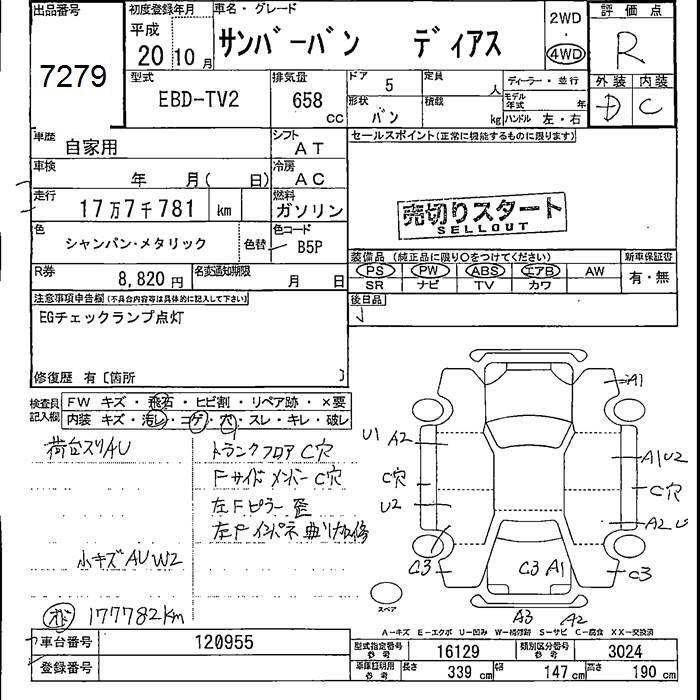 出品番号 初度登録年月 車名・グレード 2WD 評価点
7279 平成 20年10月 サンバーバン ディアス ・ 4WD R
型式 排気量 ドア 5 定員 人 ディーラー・並行 外装 内装
EBD-TV2 658 cc 形状 バン 積載 kg モデル年式 年 ハンドル 左・右 D C
車歴 自家用 シフト AT セールスポイント(正常に機能するものに限ります)
車検 年 月( 日) 冷房 AC
走行 17万7千781 km 燃料 ガソリン 売切りスタート
SELLOUT
色 シャンパン・メタリック 色替 色コード B5P
装備品(純正品に限り○をつけてください) 新車保証書
R券 8,820円 名変通知期限 月 日 PS PW ABS エアB AW 有・無
SR ナビ TV カワ
注意事項申告欄(不具合内容等は具体的に記入して下さい) 後日品
EGチェックランプ点灯
修復歴 有〔箇所 〕
検査員記入欄 FW キズ・飛石・ヒビ割・リペア跡・×要
内装 キズ・汚レ・コゲ・穴・スレ・キレ・破レ
荷台スリAU トランクフロアC穴
Fサイドメンバー C穴
左Fピラー歪
左Fインパネ曲り
小キズAUW2
177782km
A1
U1 A2
A1U2
C穴 C穴
U2 A2
C3 C3 A1 C3
スペア
A3 A2
A−キズ E−エクボ U−凹み W−補修跡 S−サビ C−腐食 XX−交換済
車台番号 120955 型式指定番号 参考 16129 類別区分番号 参考 3024
登録番号 車庫証明用 参考 長さ 339cm 幅 147cm 高さ 190cm